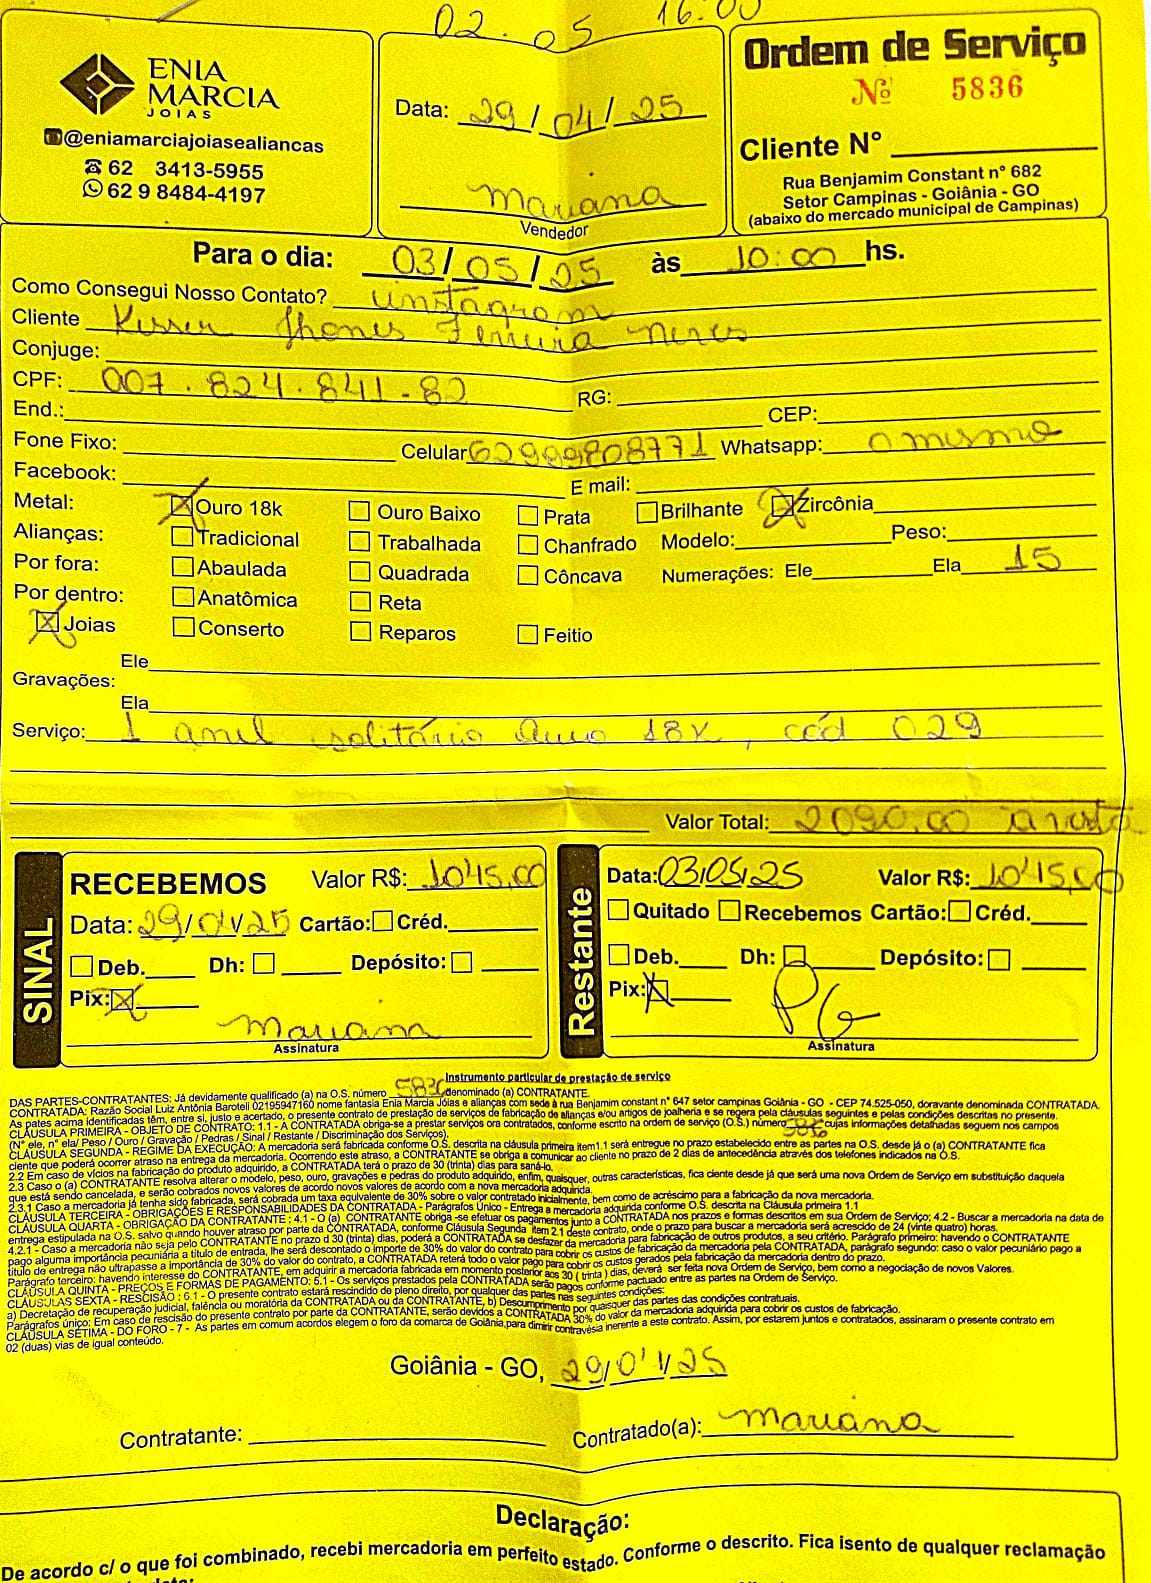 02.05 16:00
ENIA
MARCIA
JOIAS
@eniamarciajoiasealiancas
62 3413-5955
62 9 8484-4197
Data: 29/04/25
Mariana
Vendedor
Ordem de Serviço
Nº 5836
Cliente Nº
Rua Benjamim Constant n° 682
Setor Campinas - Goiânia - GO
(abaixo do mercado municipal de Campinas)
Para o dia: 03/05/25 às 10:00 hs.
Como Consegui Nosso Contato? instagram
Cliente Jhones Ferreira neves
Conjuge:
CPF: 007.824.841-82 RG:
End.: CEP:
Fone Fixo: Celular 62999808771 Whatsapp: o mesmo
Facebook: E mail:
Metal: Ouro 18k Ouro Baixo Prata Brilhante Zircônia
Alianças: Tradicional Trabalhada Chanfrado Modelo: Peso:
Por fora: Abaulada Quadrada Côncava Numerações: Ele Ela 15
Por dentro: Anatômica Reta
Joias Conserto Reparos Feitio
Ele
Gravações:
Ela
Serviço: 1 anel solitário Ouro 18K, cód 029
Valor Total: 2090,00 à vista
SINAL
RECEBEMOS Valor R$: 1045,00
Data: 29/04/25 Cartão: Créd.
Deb. Dh: Depósito:
Pix:
Mariana
Assinatura
Restante
Data: 03/05/25 Valor R$: 1045,00
Quitado Recebemos Cartão: Créd.
Deb. Dh: Depósito:
Pix: PG
Assinatura
Instrumento particular de prestação de serviço
DAS PARTES-CONTRATANTES: Já devidamente qualificado (a) na O.S. número 5836 denominado (a) CONTRATANTE.
CONTRATADA: Razão Social Luiz Antônia Baroteli 02195947160 nome fantasia Enia Marcia Jóias e alianças com sede à rua Benjamim constant n° 647 setor campinas Goiânia - GO - CEP 74.525-050, doravante denominada CONTRATADA.
As pates acima identificadas têm, entre si, justo e acertado, o presente contrato de prestação de serviços de fabricação de alianças e/ou artigos de joalheria e se regera pela cláusulas seguintes e pelas condições descritas no presente.
CLÁUSULA PRIMEIRA - OBJETO DE CONTRATO: 1.1 - A CONTRATADA obriga-se a prestar serviços ora contratados, conforme escrito na ordem de serviço (O.S.) número cujas informações detalhadas seguem nos campos
(N° ele, n° ela/ Peso / Ouro / Gravação / Pedras / Sinal / Restante / Discriminação dos Serviços).
CLÁUSULA SEGUNDA - REGIME DA EXECUÇÃO: A mercadoria será fabricada conforme O.S. descrita na cláusula primeira item1.1 será entregue no prazo estabelecido entre as partes na O.S. desde já o (a) CONTRATANTE fica
ciente que poderá ocorrer atraso na entrega da mercadoria. Ocorrendo este atraso, a CONTRATANTE se obriga a comunicar ao cliente no prazo de 2 dias de antecedência através dos telefones indicados na O.S.
2.2 Em caso de vícios na fabricação do produto adquirido, a CONTRATADA terá o prazo de 30 (trinta) dias para saná-lo.
2.3 Caso o (a) CONTRATANTE resolva alterar o modelo, peso, ouro, gravações e pedras do produto adquirido, enfim, quaisquer, outras características, fica ciente desde já que será uma nova Ordem de Serviço em substituição daquela
que está sendo cancelada, e serão cobrados novos valores de acordo novos valores de acordo com a nova mercadoria adquirida.
2.3.1 Caso a mercadoria já tenha sido fabricada, será cobrada um taxa equivalente de 30% sobre o valor contratado inicialmente, bem como de acréscimo para a fabricação da nova mercadoria.
CLÁUSULA TERCEIRA - OBRIGAÇÕES E RESPONSABILIDADES DA CONTRATADA - Parágrafos Único - Entrega a mercadoria adquirida conforme O.S. descrita na Cláusula primeira 1.1
CLÁUSULA QUARTA - OBRIGAÇÃO DA CONTRATANTE ; 4.1 - O (a) CONTRATANTE obriga -se efetuar os pagamentos junto a CONTRATADA nos prazos e formas descritos em sua Ordem de Serviço; 4.2 - Buscar a mercadoria na data de
entrega estipulada na O.S. salvo quando houver atraso por parte da CONTRATADA, conforme Cláusula Segunda item 2.1 deste contrato, onde o prazo para buscar a mercadoria será acrescido de 24 (vinte quatro) horas.
4.2.1 - Caso a mercadoria não seja pelo CONTRATANTE no prazo d 30 (trinta) dias, poderá a CONTRATADA se desfazer da mercadoria para fabricação de outros produtos, a seu critério. Parágrafo primeiro: havendo o CONTRATANTE
pago alguma importância pecuniária a título de entrada, lhe será descontado o importe de 30% do valor do contrato para cobrir os custos de fabricação da mercadoria pela CONTRATADA, parágrafo segundo: caso o valor pecuniário pago a
título de entrega não ultrapasse a importância de 30% do valor do contrato, a CONTRATADA reterá todo o valor pago para cobrir os custos gerados pela fabricação da mercadoria dentro do prazo.
Parágrafo terceiro: havendo interesse do CONTRATANTE, em adquirir a mercadoria fabricada em momento posterior aos 30 ( trinta ) dias, deverá ser feita nova Ordem de Serviço, bem como a negociação de novos Valores.
CLÁUSULA QUINTA - PREÇOS E FORMAS DE PAGAMENTO: 5.1 - Os serviços prestados pela CONTRATADA serão pagos conforme pactuado entre as partes na Ordem de Serviço.
CLÁUSULAS SEXTA - RESCISÃO : 6.1 - O presente contrato estará rescindido de pleno direito, por qualquer das partes nas seguintes condições:
a) Decretação de recuperação judicial, falência ou moratória da CONTRATADA ou da CONTRATANTE, b) Descumprimento por quaisquer das partes das condições contratuais.
Parágrafos único: Em caso de rescisão do presente contrato por parte da CONTRATANTE, serão devidos a CONTRATADA 30% do valor da mercadoria adquirida para cobrir os custos de fabricação.
CLÁUSULA SÉTIMA - DO FORO - 7 - As partes em comum acordos elegem o foro da comarca de Goiânia,para dirimir contravésia inerente a este contrato. Assim, por estarem juntos e contratados, assinaram o presente contrato em
02 (duas) vias de igual conteúdo.
Goiânia - GO, 29/04/25
Contratante: Contratado(a): Mariana
Declaração:
De acordo c/ o que foi combinado, recebi mercadoria em perfeito estado. Conforme o descrito. Fica isento de qualquer reclamação